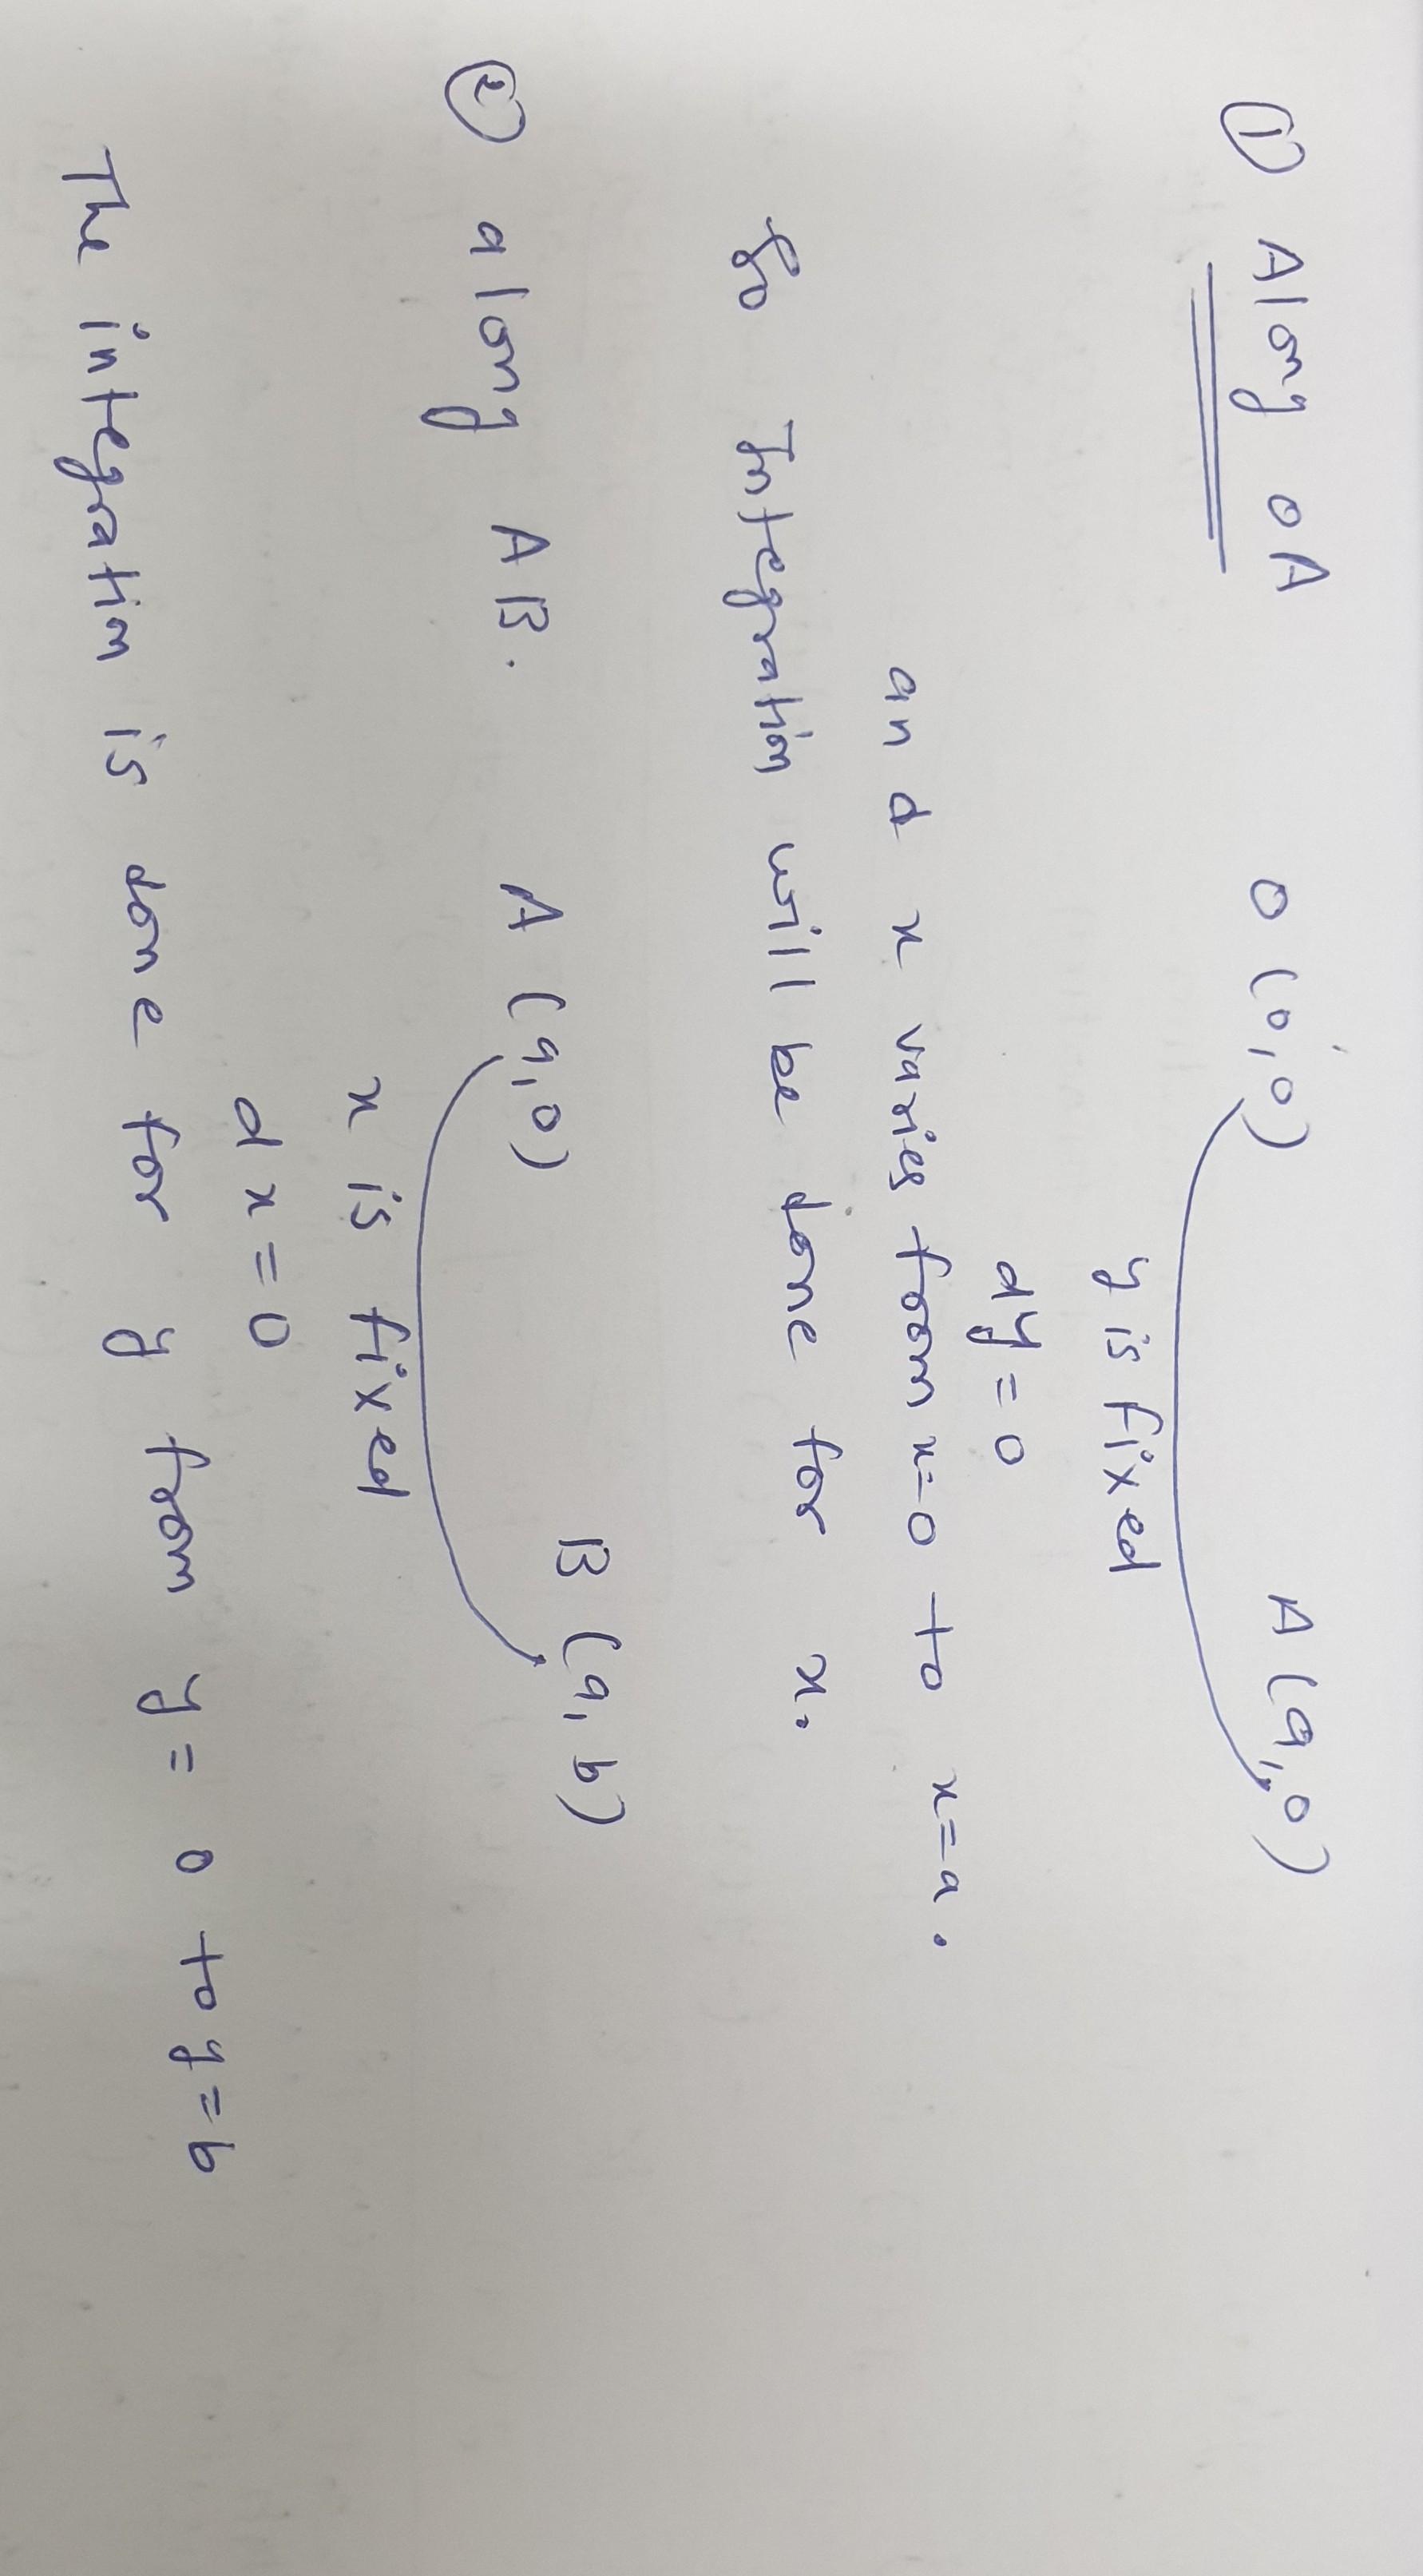 ① Along OA O (0,0) A (a,0)
y is fixed
dy = 0
and x varies from x=0 to x=a.
So Integration will be done for x.
② along AB. A (a,0) B (a,b)
x is fixed
dx = 0
The integration is done for y from y = 0 to y=b